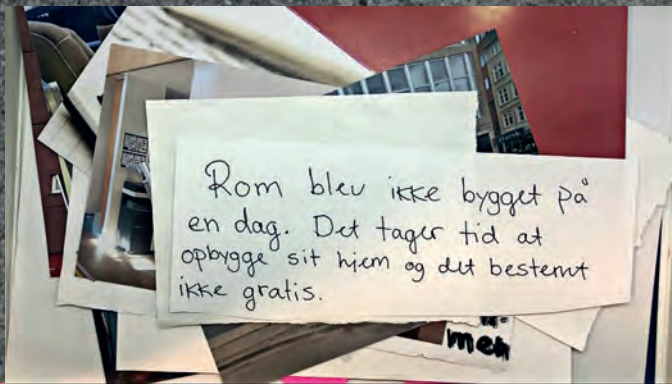 Rom blev ikke bygget på
en dag. Det tager tid at
opbygge sit hjem og det bestemt
ikke gratis.
men